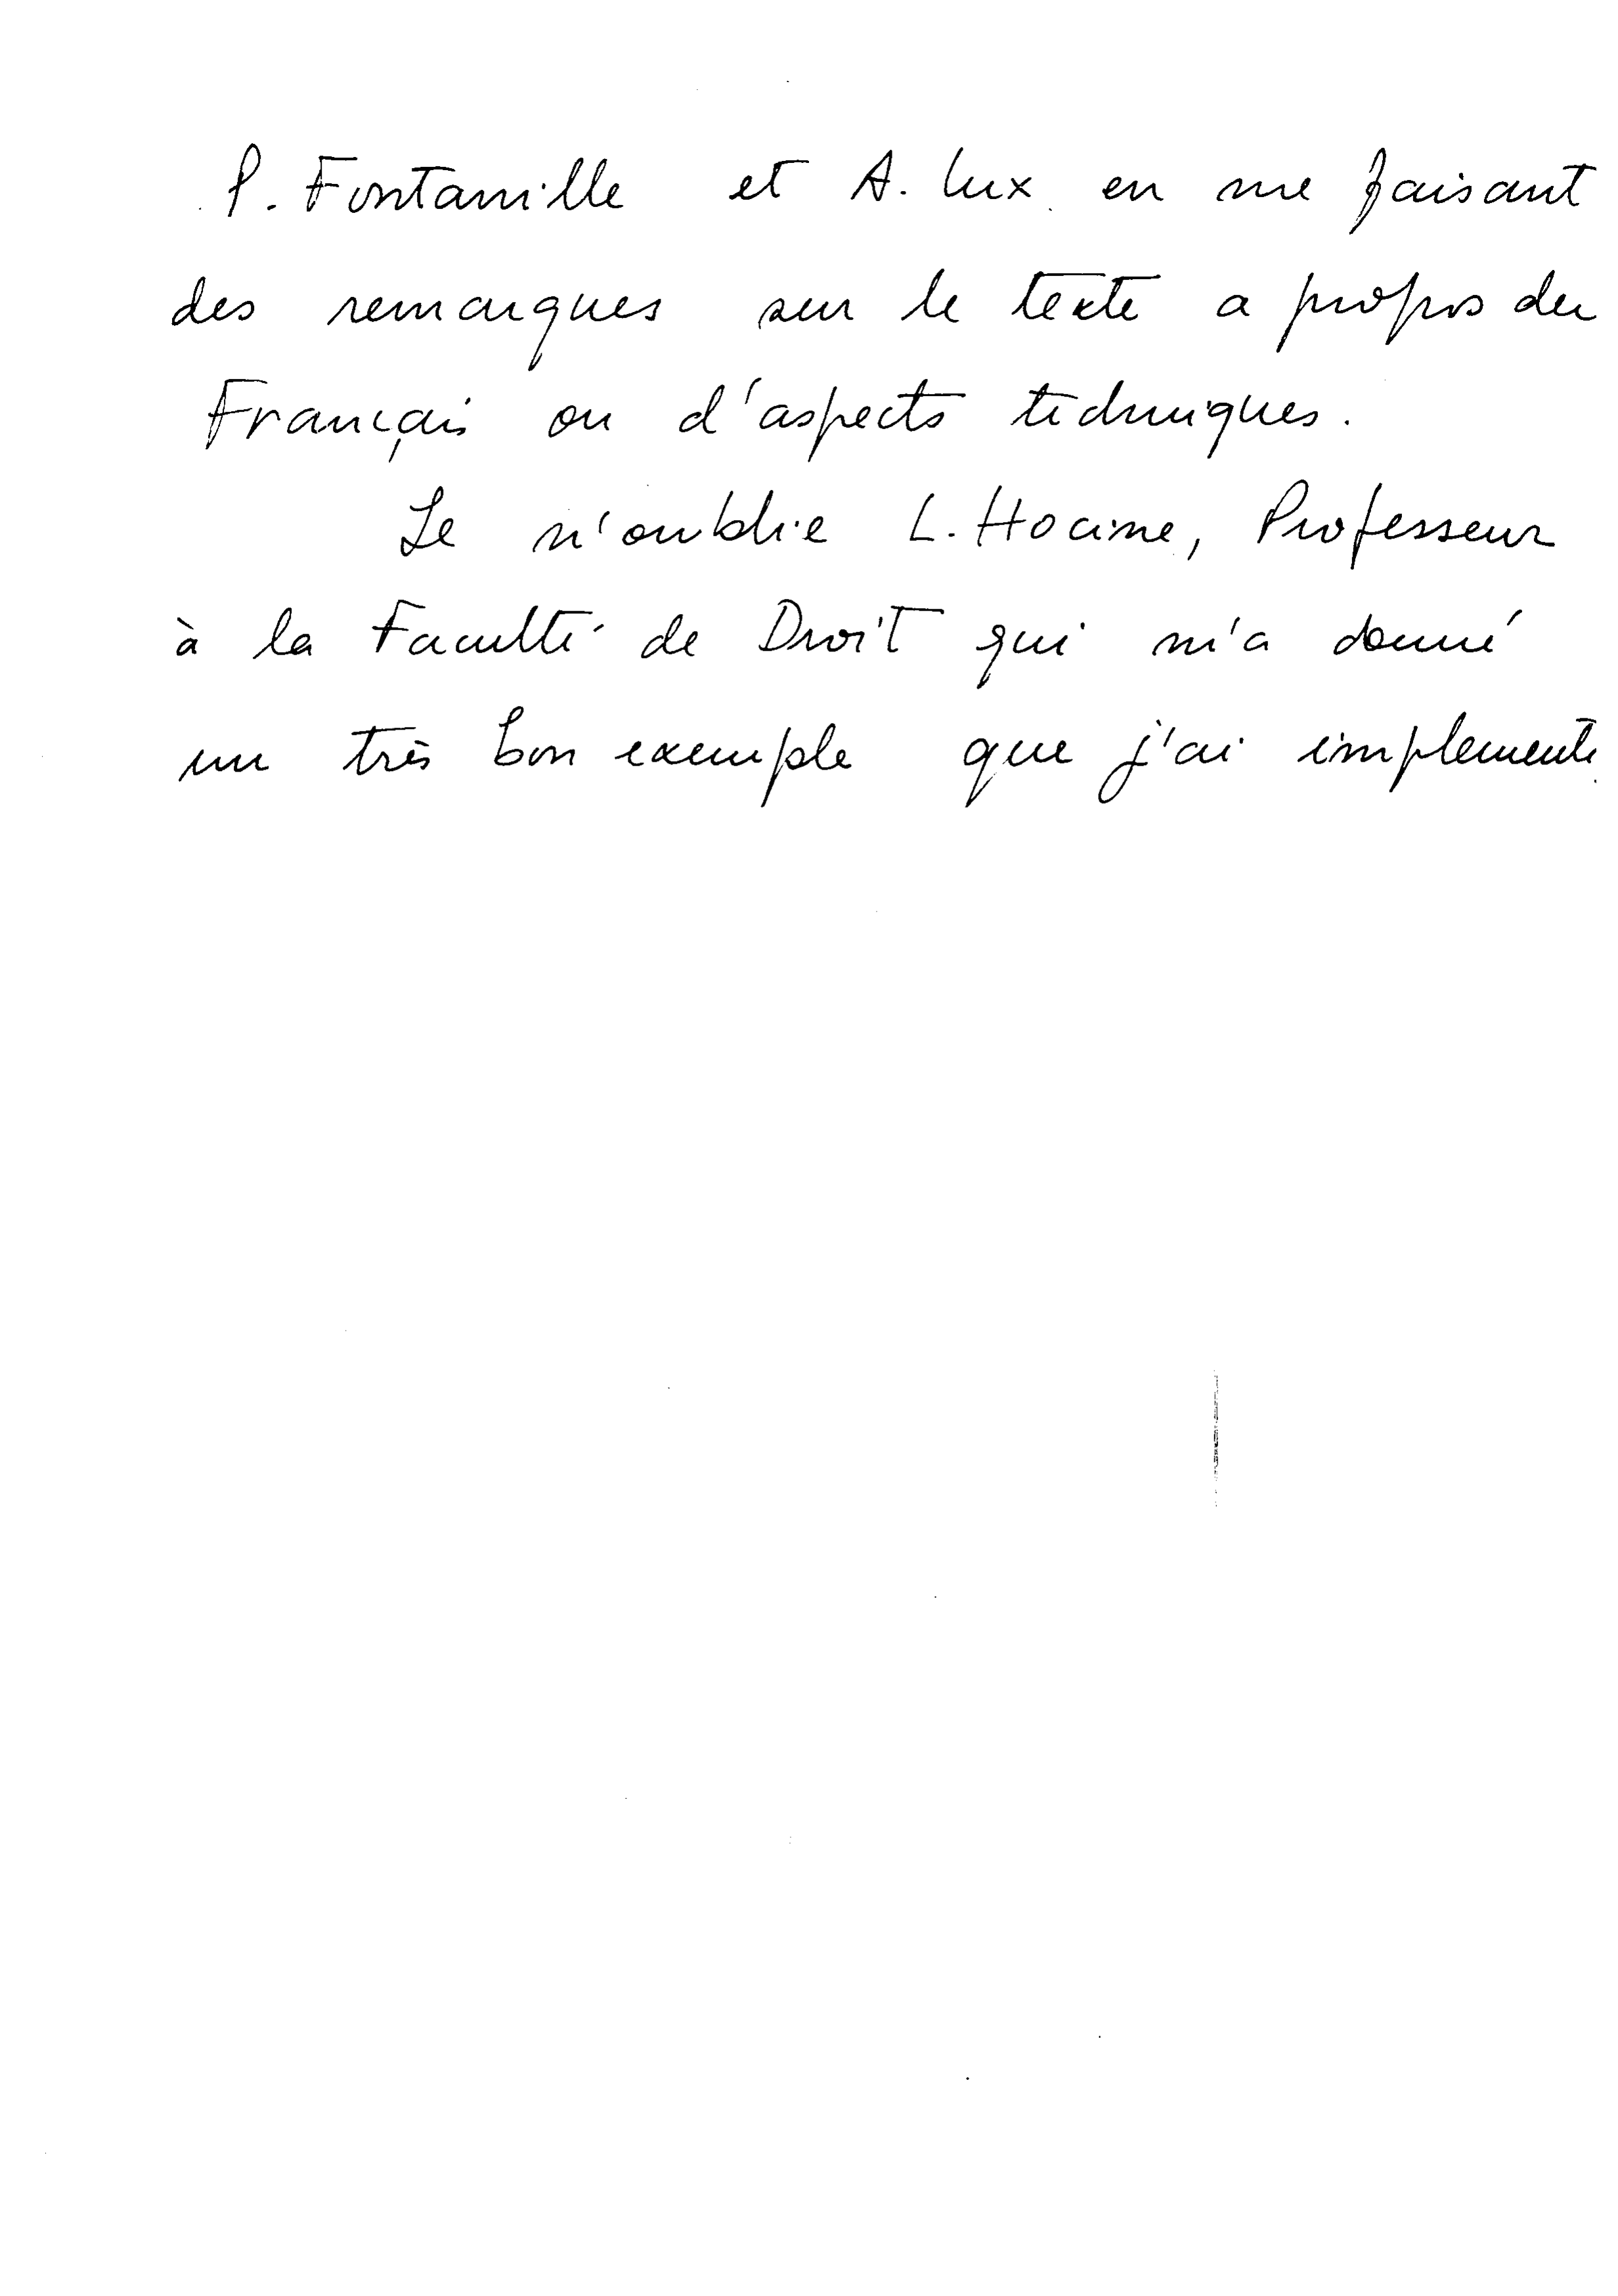 P. Fontanille et A. Lux en me faisant
des remarques sur le texte a propos du
Français ou d'aspects techniques.
Je n'oublie L. Hocine, Professeur
à la Faculté de Droit qui m'a donné
un très bon exemple que j'ai implementé